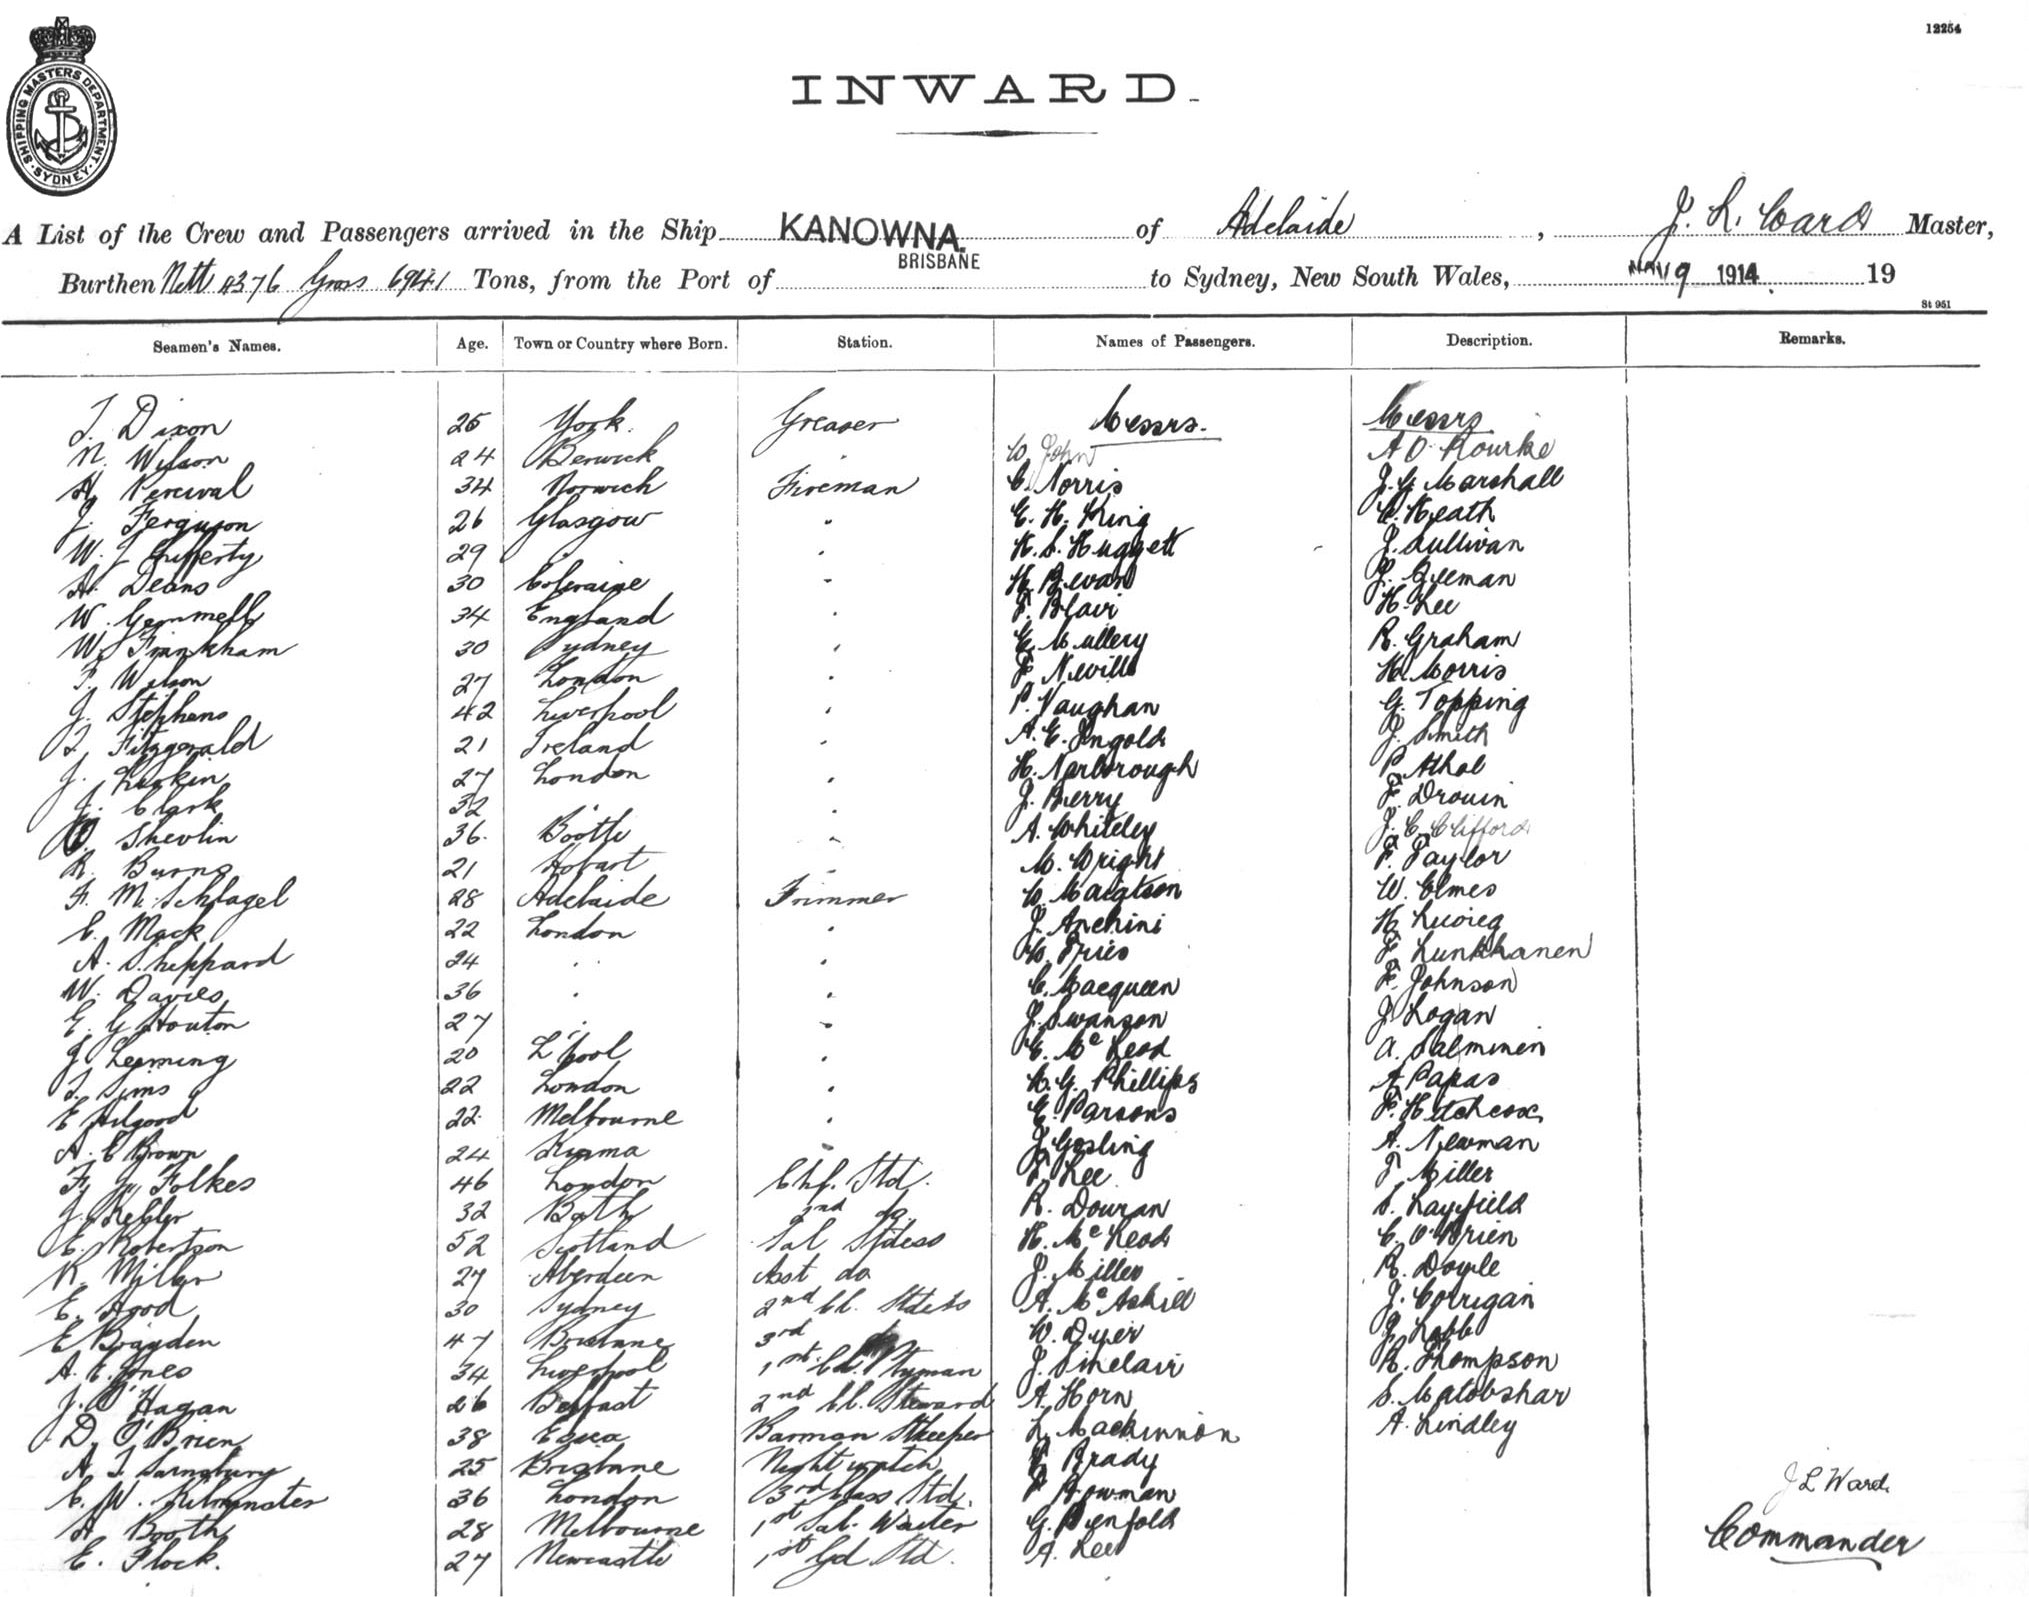 12254
SHIPPING MASTERS DEPARTMENT SYDNEY
INWARD.
A List of the Crew and Passengers arrived in the Ship KANOWNA. of Adelaide, J. L. Ward Master,
BRISBANE
Burthen Nett 4376 Gross 6941 Tons, from the Port of to Sydney, New South Wales, NOV 9 1914. 19
St 951
Seamen's Names. Age. Town or Country where Born. Station. Names of Passengers. Description. Remarks.
T. Dixon 25 York. Greaser Messrs. Messrs
N. Wilson 24 Berwick " W. John A O'Rourke
H. Percival 34 Norwich Fireman C. Norris J. G. Marshall
J. Ferguson 26 Glasgow " E. H. King C. Heath
W. J. 29 " " H. S. Huggett J. Sullivan
A. Deans 30 Coleraine " H. Bevan J.
W. Gemmell 34 England " F. Blair H. Lee
W. Frankham 30 Sydney " E. Mullery R. Graham
F. Wilson 27 London " F. Neville H. Morris
J. Stephens 42 Liverpool " P. Vaughan G. Topping
T. Fitzgerald 21 Ireland " A. E. Ingold J. Smith
J. Larkin 27 London " H. Narborough P. Athol
J. Clark 32 " " J. Berry F. Drouin
Shevlin 36 Bootle " A. Whiteley J. C. Clifford
R. Burns 21 Hobart " M. Wright F. Taylor
F. M. Schlagel 28 Adelaide Trimmer W. W. Elmes
C. Mack 22 London " J. Anchini H.
A. Sheppard 24 " " W. Fries F. Lunkkanen
W. Davies 36 " " C. Macqueen F. Johnson
E. G. Houton 27 " " J. Swanson J Logan
J. Leeming 20 L'pool " C. McLeod A. Salminen
T. Sims 22 London " W. G. Phillips A Papas
E 22 Melbourne " E. Parsons F. Hitchcox
A. E Brown 24 Kiama " J. Gosling A. Newman
F. J. Folkes 46 London Chf. Std. F. Lee F Miller
J. 32 Bath 2nd do R. Douran S. Layfield
E. Robertson 52 Scotland Sal Stdess H. McLeod C. O'Brien
K. Miller 27 Aberdeen Asst do J. Miller R. Doyle
E. Hood 30 Sydney 2nd Cl. Stdess A. McAskill J. Corrigan
E Brayden 47 Brisbane 3rd W. Dyer J. Labb
A. E. Jones 34 Liverpool 1st Cl. P'tyman J. Sinclair R. Thompson
J. O'Hagan 26 Belfast 2nd Cl. Steward A. Horn S. Matobshar
D. O'Brien 38 Barman Stkeeper L. Mackinnon A. Lindley
A. J. Sainsbury 25 Brisbane Night watch Brady
C. W. Kilminster 36 London 3rd Class Std. F Bowman J L Ward.
A. Booth 28 Melbourne 1st Sal. Waiter G. Penfold Commander
E. Flock. 27 Newcastle 1st Gd Std. A. Lee